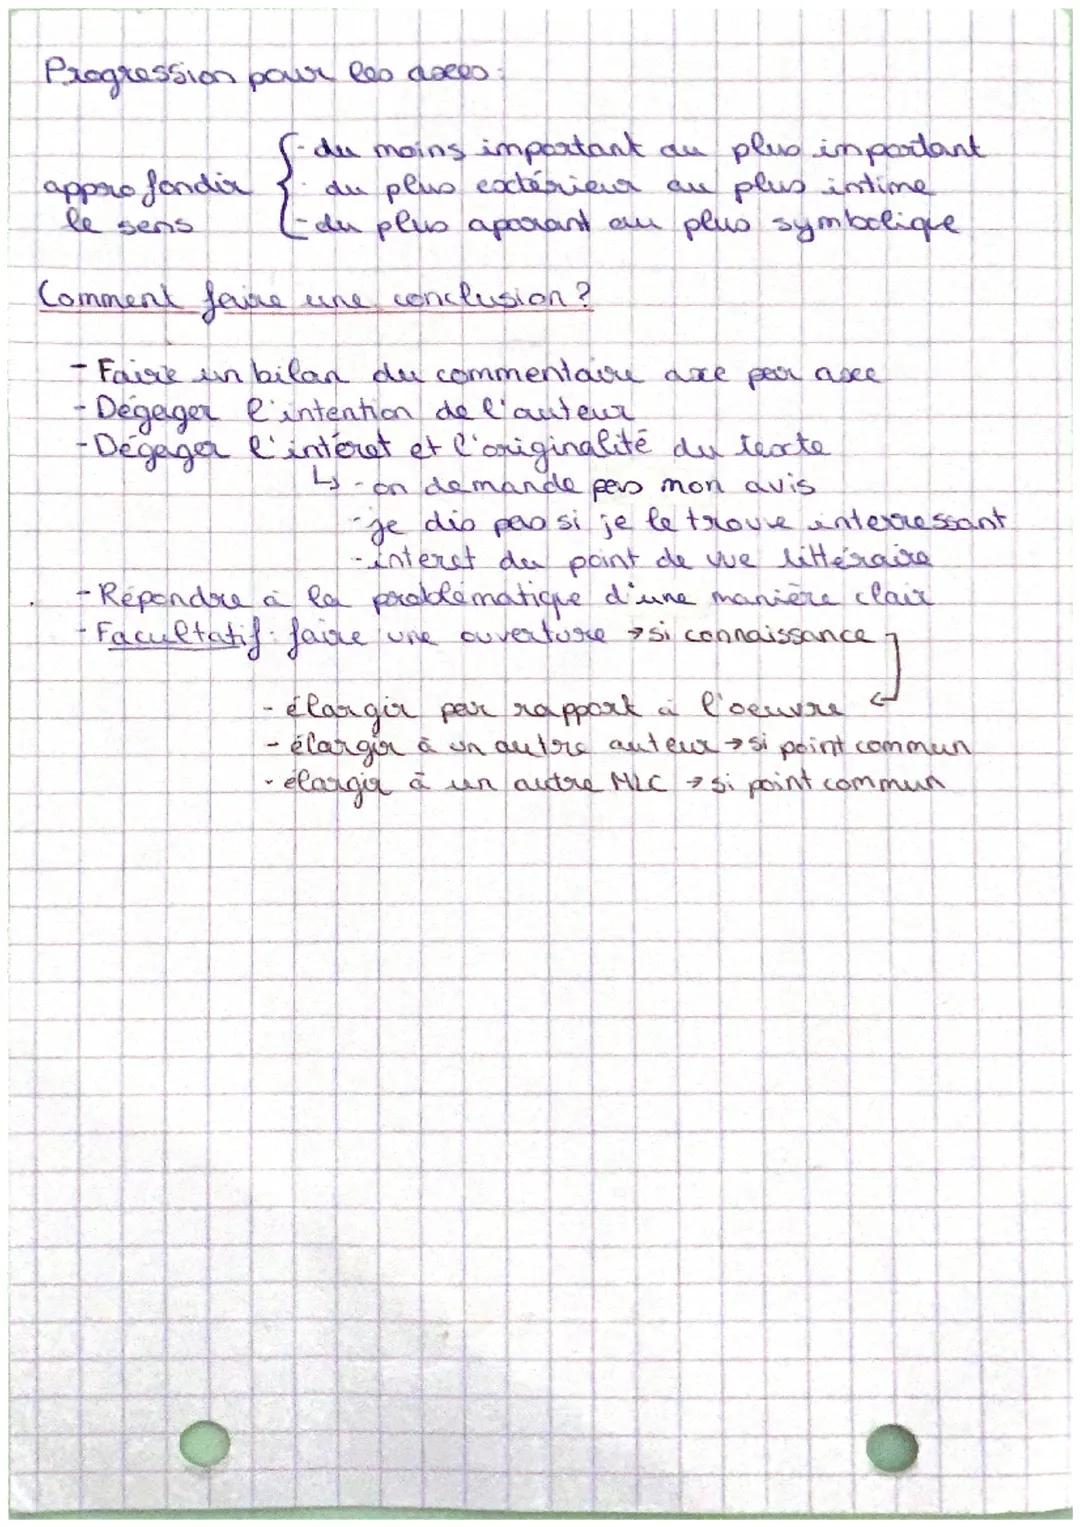 Progression pour les axes :
- du moins important au plus important
approfondir - du plus extérieur au plus intime
le sens - du plus aparant au plus symbolique
Comment faire une conclusion ?
- Faire un bilan du commentaire axe par axe
- Dégager l'intention de l'auteur
- Dégager l'intéret et l'originalité du texte
↳ - on demande pas mon avis
- je dis pas si je le trouve interressant
- interet du point de vue littéraire
- Répondre à la problématique d'une manière clair
- Facultatif : faire une ouverture → si connaissance
- élargir par rapport à l'oeuvre
- élargir à un autre auteur → si point commun
- élargir à un autre MLC → si point commun